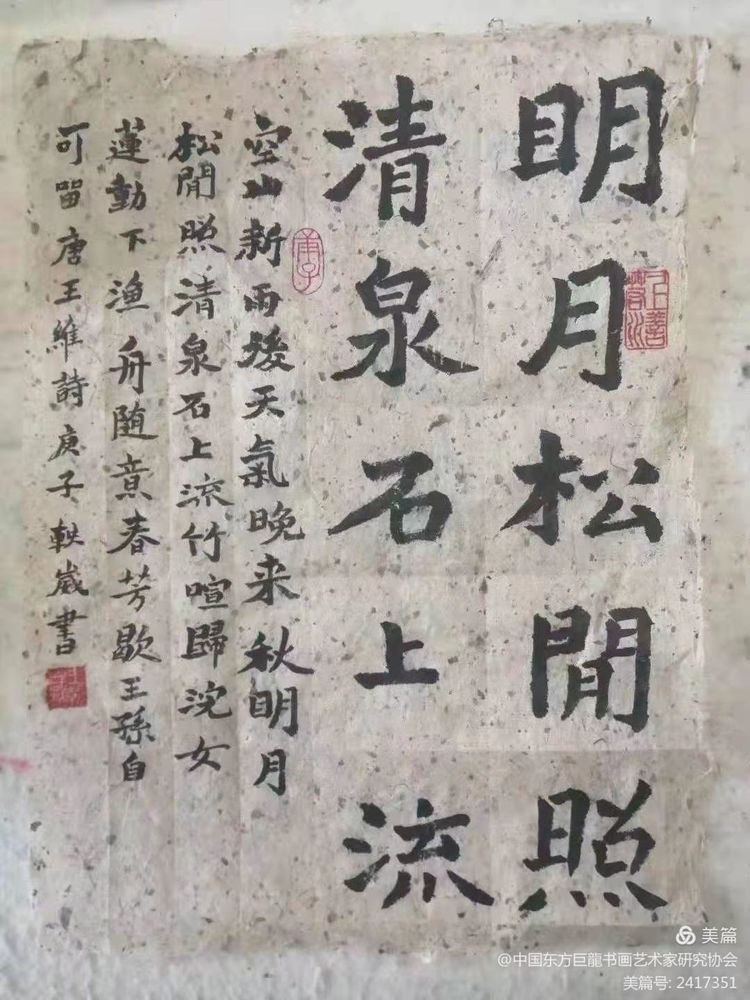 明月松閒照
清泉石上流
空山新雨後天氣晚来秋明月
松閒照清泉石上流竹喧歸浣女
蓮動下漁舟随意春芳歇王孫自
可留唐王維詩庚子軼崴書
上善若水
庚子
美篇
@中国东方巨龍书画艺术家研究协会
美篇号: 2417351